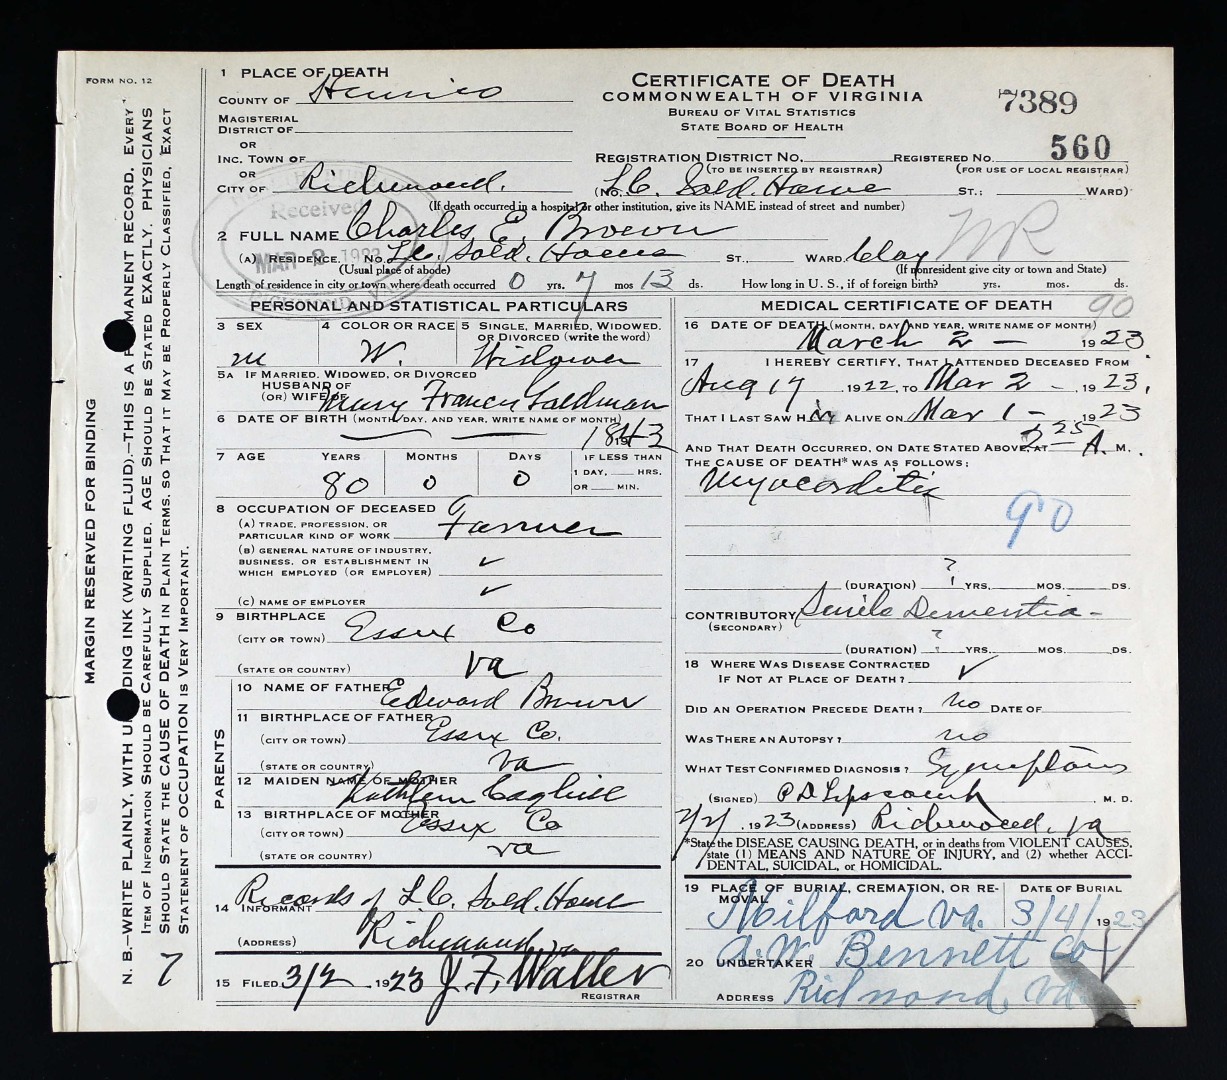 FORM NO. 12
MARGIN RESERVED FOR BINDING
N. B.—WRITE PLAINLY, WITH UN DING INK (WRITING FLUID).—THIS IS A P MANENT RECORD. EVERY
ITEM OF INFORMATION SHOULD BE CAREFULLY SUPPLIED. AGE SHOULD BE STATED EXACTLY. PHYSICIANS
SHOULD STATE THE CAUSE OF DEATH IN PLAIN TERMS, SO THAT IT MAY BE PROPERLY CLASSIFIED. EXACT
STATEMENT OF OCCUPATION IS VERY IMPORTANT.
7
1 PLACE OF DEATH
COUNTY OF Henrico
MAGISTERIAL
DISTRICT OF
OR
INC. TOWN OF
OR
CITY OF Richmond.
CERTIFICATE OF DEATH
COMMONWEALTH OF VIRGINIA
BUREAU OF VITAL STATISTICS
STATE BOARD OF HEALTH
7389
560
REGISTRATION DISTRICT NO. REGISTERED NO.
(TO BE INSERTED BY REGISTRAR) (FOR USE OF LOCAL REGISTRAR)
(No. L.C. Sold. Home ST.; WARD)
(If death occurred in a hospital or other institution, give its NAME instead of street and number)
Received
MAR
2 FULL NAME Charles E. Brown
(A) RESIDENCE. No. L.C. Sold. Home ST., WARD. Clay
NR
(Usual place of abode) (If nonresident give city or town and State)
Length of residence in city or town where death occurred 0 yrs. 7 mos 13 ds. How long in U. S., if of foreign birth? yrs. mos. ds.
PERSONAL AND STATISTICAL PARTICULARS
3 SEX 4 COLOR OR RACE 5 SINGLE, MARRIED, WIDOWED,
OR DIVORCED (write the word)
m W. Widower
5A IF MARRIED, WIDOWED, OR DIVORCED
HUSBAND OF
(OR) WIFE OF Mary Frances Saldman
6 DATE OF BIRTH (MONTH, DAY, AND YEAR, WRITE NAME OF MONTH)
1843
7 AGE YEARS MONTHS DAYS IF LESS THAN
1 DAY, HRS.
OR MIN.
80 0 0
8 OCCUPATION OF DECEASED
(A) TRADE, PROFESSION, OR
PARTICULAR KIND OF WORK Farmer
(B) GENERAL NATURE OF INDUSTRY,
BUSINESS, OR ESTABLISHMENT IN
WHICH EMPLOYED (OR EMPLOYER)
(C) NAME OF EMPLOYER
9 BIRTHPLACE
(CITY OR TOWN) Essex Co
(STATE OR COUNTRY) Va
PARENTS
10 NAME OF FATHER Edward Brown
11 BIRTHPLACE OF FATHER
(CITY OR TOWN) Essex Co.
(STATE OR COUNTRY) Va
12 MAIDEN NAME OF MOTHER
Kathleen Caghill
13 BIRTHPLACE OF MOTHER
(CITY OR TOWN) Essex Co
(STATE OR COUNTRY) Va
14 INFORMANT Records of L.C. Sold. Home
(ADDRESS) Richmond, Va
15 FILED 3/2, 1923 J. F. Waller
REGISTRAR
MEDICAL CERTIFICATE OF DEATH
90
16 DATE OF DEATH (MONTH, DAY, AND YEAR, WRITE NAME OF MONTH)
March 2 — 1923
17 I HEREBY CERTIFY, THAT I ATTENDED DECEASED FROM
Aug 17 1922, TO Mar 2 —, 1923,
THAT I LAST SAW HIM ALIVE ON Mar 1 —, 1923
AND THAT DEATH OCCURRED, ON DATE STATED ABOVE, AT 2 25 A. M.
THE CAUSE OF DEATH* WAS AS FOLLOWS:
Myocarditis
90
?
(DURATION) YRS. MOS. DS.
CONTRIBUTORY Senile Dementia —
(SECONDARY)
?
(DURATION) YRS. MOS. DS.
18 WHERE WAS DISEASE CONTRACTED
IF NOT AT PLACE OF DEATH?
DID AN OPERATION PRECEDE DEATH? no DATE OF
WAS THERE AN AUTOPSY? no
WHAT TEST CONFIRMED DIAGNOSIS? Symptoms
(SIGNED) P D Lipscomb, M. D.
, 1923 (ADDRESS) Richmond, Va
*State the DISEASE CAUSING DEATH, or in deaths from VIOLENT CAUSES,
state (1) MEANS AND NATURE OF INJURY, and (2) whether ACCI-
DENTAL, SUICIDAL, or HOMICIDAL.
19 PLACE OF BURIAL, CREMATION, OR RE-
MOVAL
DATE OF BURIAL
Milford Va. 3/4/1923
20 UNDERTAKER A. W. Bennett Co
ADDRESS Richmond, Va